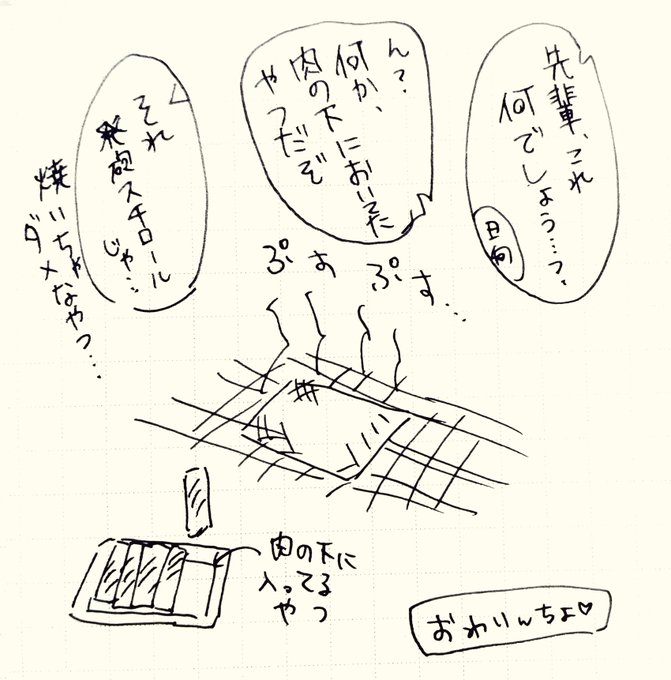 先輩、これ
何でしょう…?
日向
ん?
何か、
肉の下においてた
やつだぞ
それ
発砲スチロール
じゃ…
焼いちゃなやつ…
ダメ
ぷす
ぷす…
肉の下に
入ってる
やつ
おわりんちょ♡